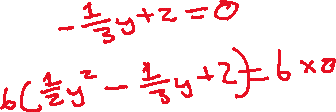 -1/3 y + 2 = 0
6(1/2 y² - 1/3 y + 2) = 6 × 0